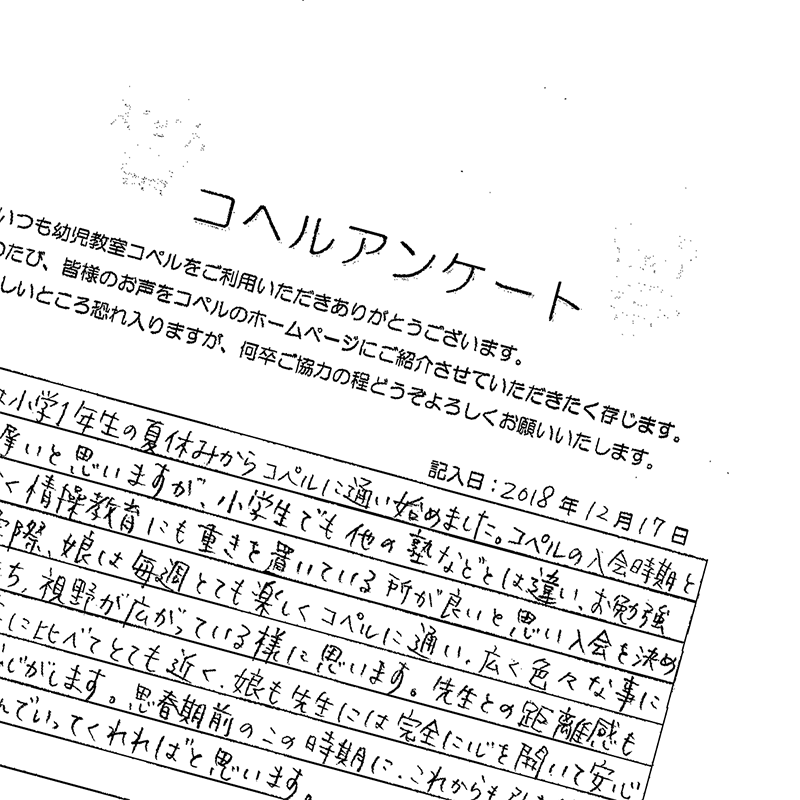 コペルアンケート
いつも幼児教室コペルをご利用いただきありがとうございます。
のたび、皆様のお声をコペルのホームページにご紹介させていただきたく存じます。
しいところ恐れ入りますが、何卒ご協力の程どうぞよろしくお願いいたします。
記入日：2018年12月17日
は小学1年生の夏休みからコペルに通い始めました。コペルの入会時期と
遅いと思いますが、小学生でも他の塾などとは違い、お勉強
なく情操教育にも重きを置いている所が良いと思い入会を決め
実際、娘は毎週とても楽しくコペルに通い、広く色々な事に
ち、視野が広がっている様に思います。先生との距離感も
に比べてとても近く、娘も先生には完全に心を開いて安心
じがします。思春期前のこの時期に、これからも
んでいってくれればと思います。